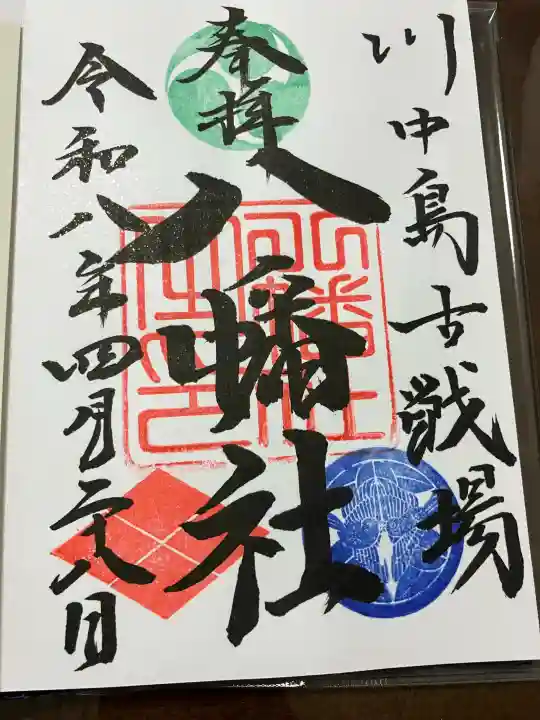 川中島古戦場
奉拝
八幡社
令和八年四月二十八日